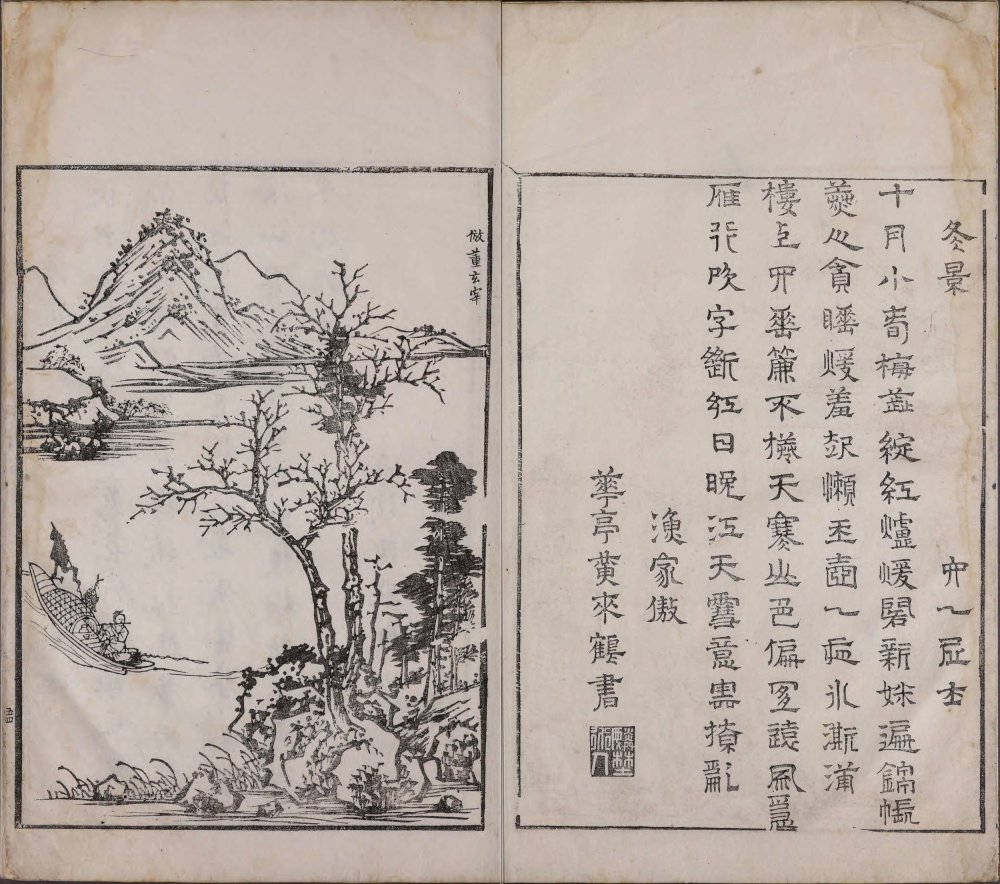 冬景 六一居士
十月小春梅蕊綻紅爐煖閣新妝遍錦帳
美人貪睡煖羞起懶玉壺一夜冰澌滿
樓上四垂簾不捲天寒山色偏宜遠風急
雁行吹字斷紅日晚江天雪意雲撩亂
漁家傲
華亭黃來鶴書
倣董玄宰